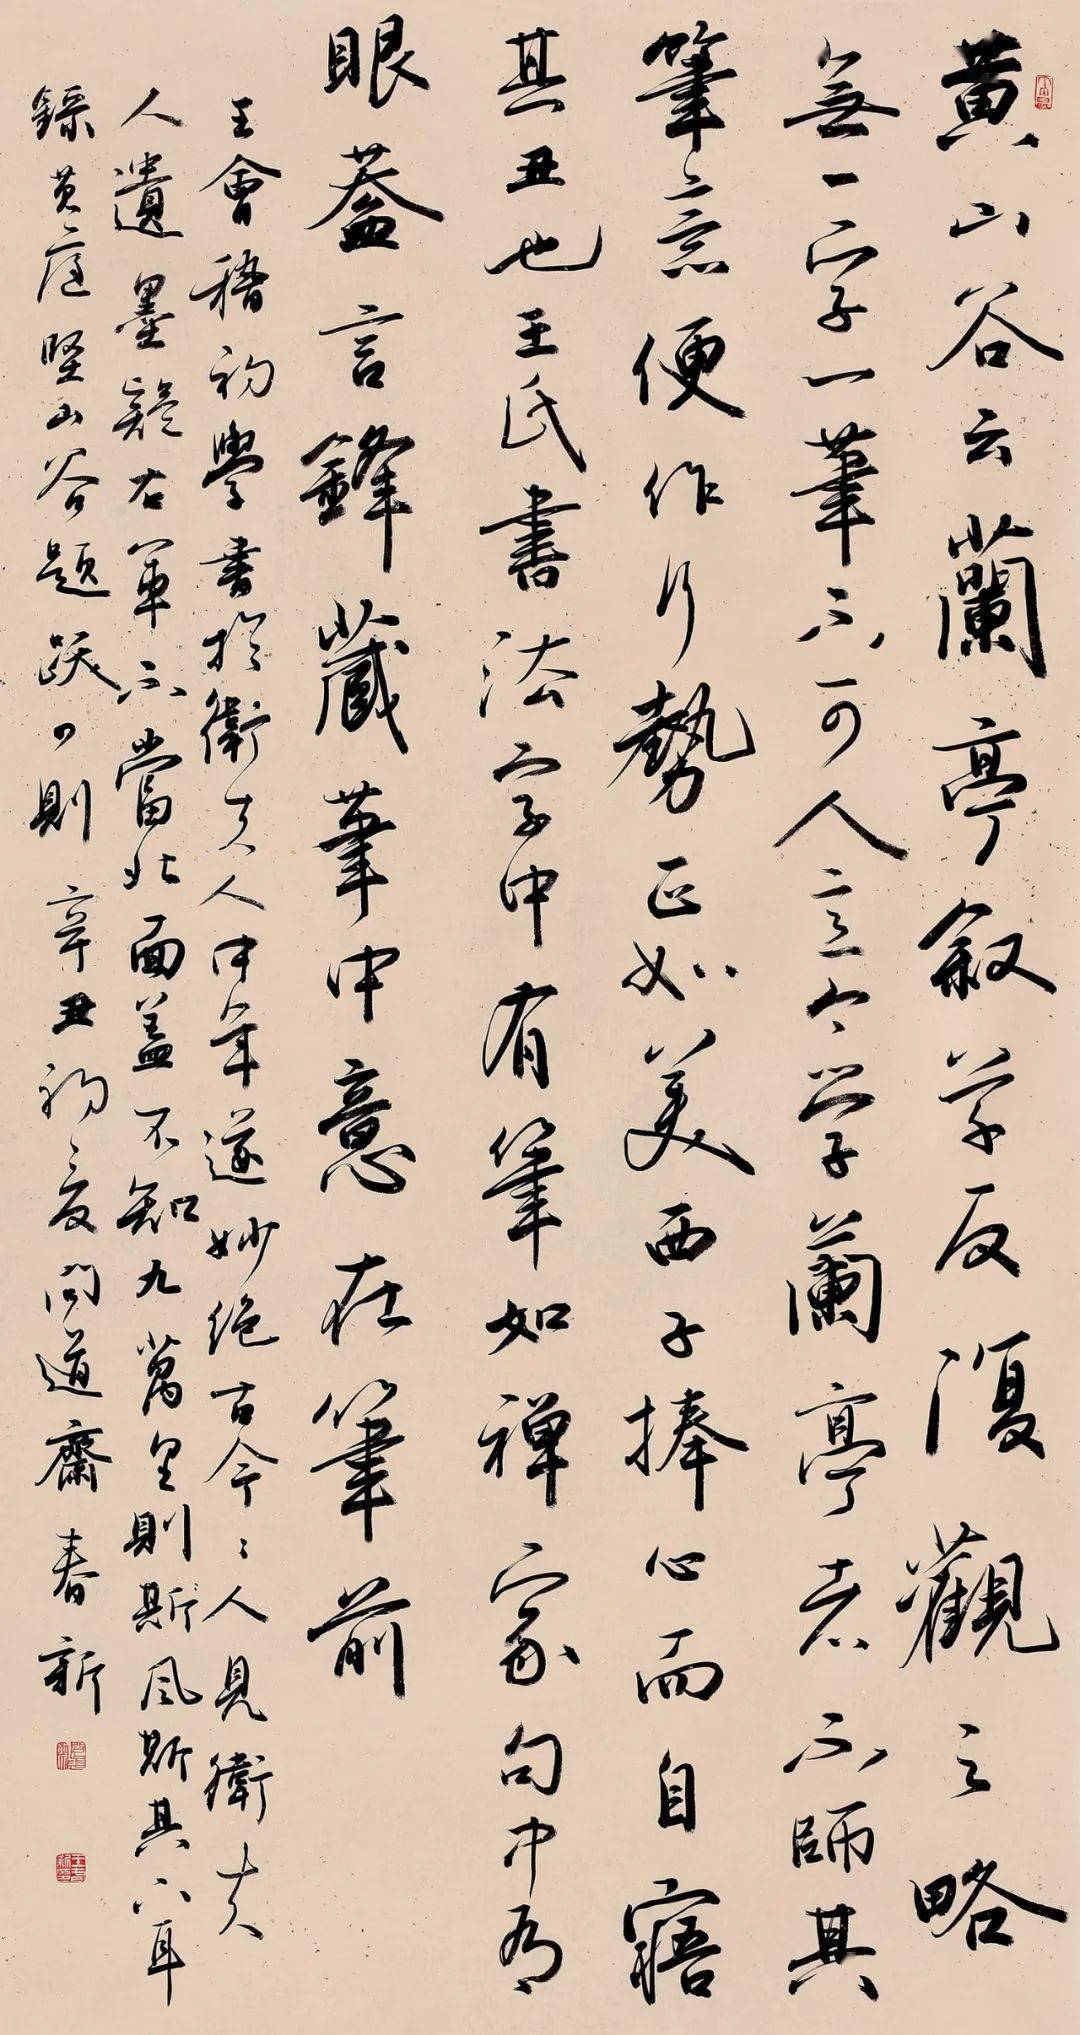 黄山谷云蘭亭叙草反復觀之略
無一字一筆不可人意今學蘭亭者不師其
筆意便作行勢正如美西子捧心而自寤
其丑也王氏書法字中有筆如禅家句中有
眼蓋言鋒藏筆中意在筆前
王會稽初學書於衛夫人中年遂妙绝古今今人見衛夫
人遺墨疑右軍不當北面盖不知九萬里則斯風斯在下耳
録黄庭堅山谷题跋二則 辛丑初夏問道齋春新